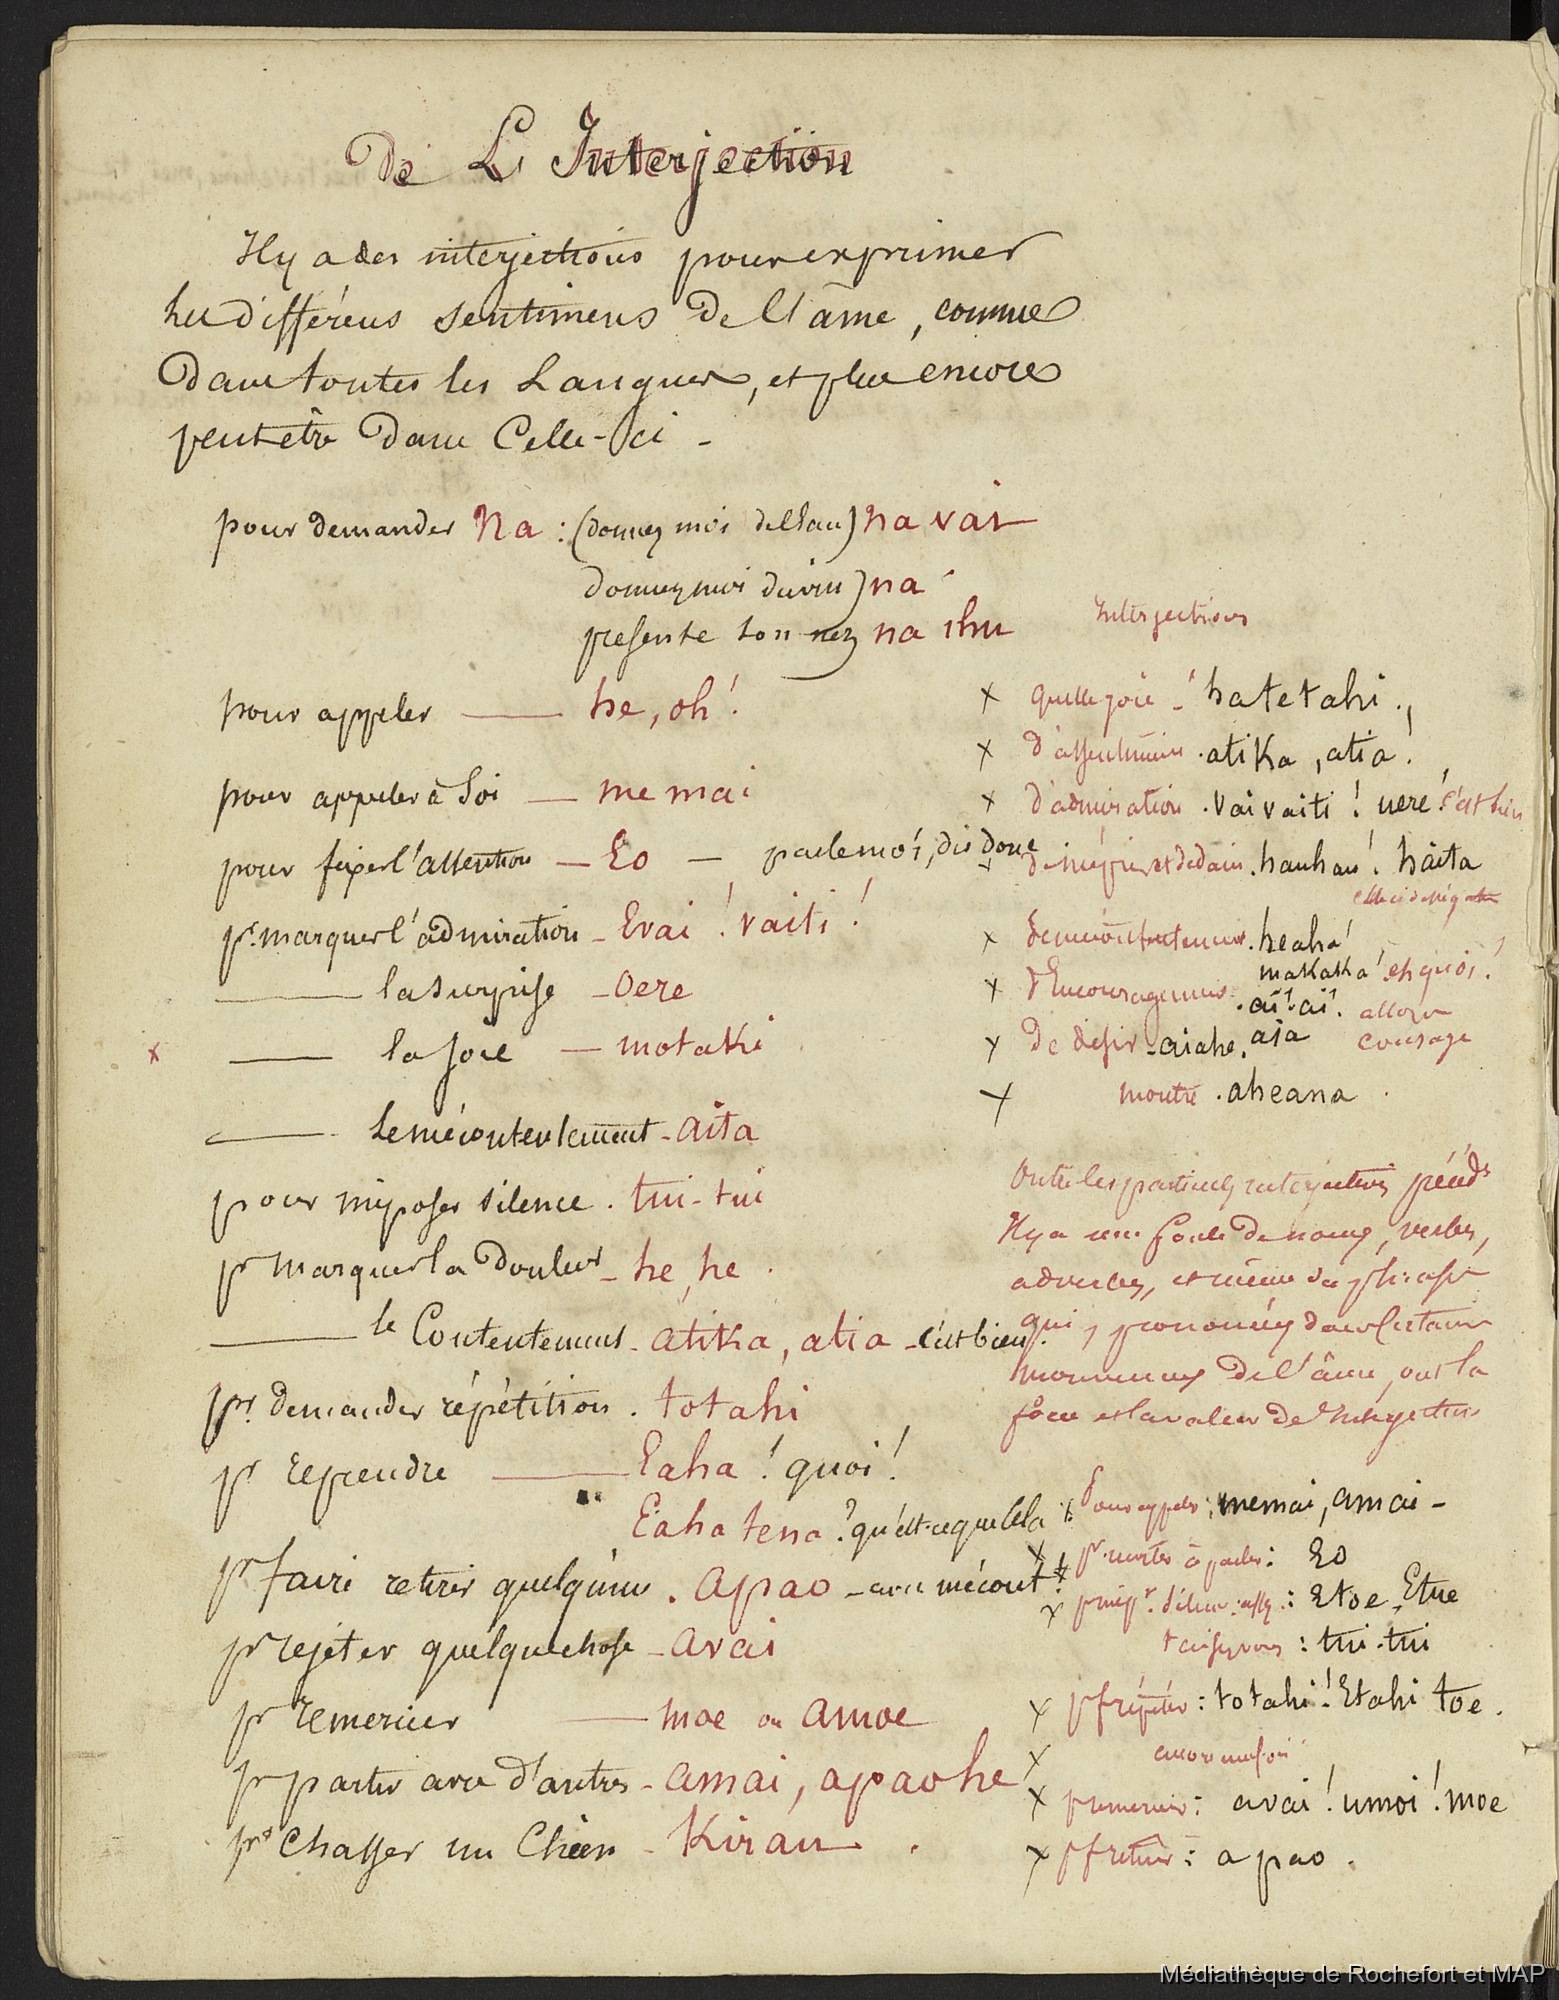 de L'Interjection
Il y a des interjections pour exprimer
les différens sentimens de l'âme, comme
dans toutes les Langues, et plus encore
peut être dans Celle-ci -
pour demander Na : (donnez moi de l'eau) na vai
donnez moi du vin) na
présente ton nez na ihu
pour appeler — he, oh !
pour appeler à Soi — me mai
pour fixer l'attention — Eo — parle moi, dis donc
pr. marquer l'admiration - Evai ! vaiti !
— la surprise - Oere
x — la joie — motaki
— le mécontentement - aita
pour imposer silence . tui-tui
pr marquer la douleur - he, he .
— le Contentement - atika, atia - c'est bien
pr. demander répétition . totahi
pr reprendre — Eaha ! quoi !
Eaha tena ? qu'est-ce que cela
pr faire retirer quelqu'un . apao - avec mécont.t
pr rejeter quelque chose - avai
pr remercier — moe ou amoe
pr partir avec d'autres - amai, apaohe
pr chasser un Chien - Kirau .
Interjections
x quelle joie - ! hatetahi .,
x d'assentiment . atika, atia !
x d'admiration . vai vaiti ! uere ! c'est bien
x de mépris et dédain . hauhau ! haita
x de mécontentement . heaha !
makaka ! eh quoi !
x d'Encouragement . ai ! ai ! allons
courage
x de désir - aiahe, aia
x montre . aheana .
Outre les particules interjectives précéd.s
Il y a une foule de noms, verbes,
adverbes, et même des phrases
qui, prononcés dans certains
mouvemens de l'âme, ont la
force et la valeur de l'Interjection
Pour appeler : memai, amai -
x pr. inviter à parler : Eo
x silence : Etoe, Etue
taisez vous : tui-tui
x pr répéter : totahi ! Etahi toe .
x encore une fois
x pr remercier : avai ! umoi ! moe
x pr retirer : a pao .
Médiathèque de Rochefort et MAP